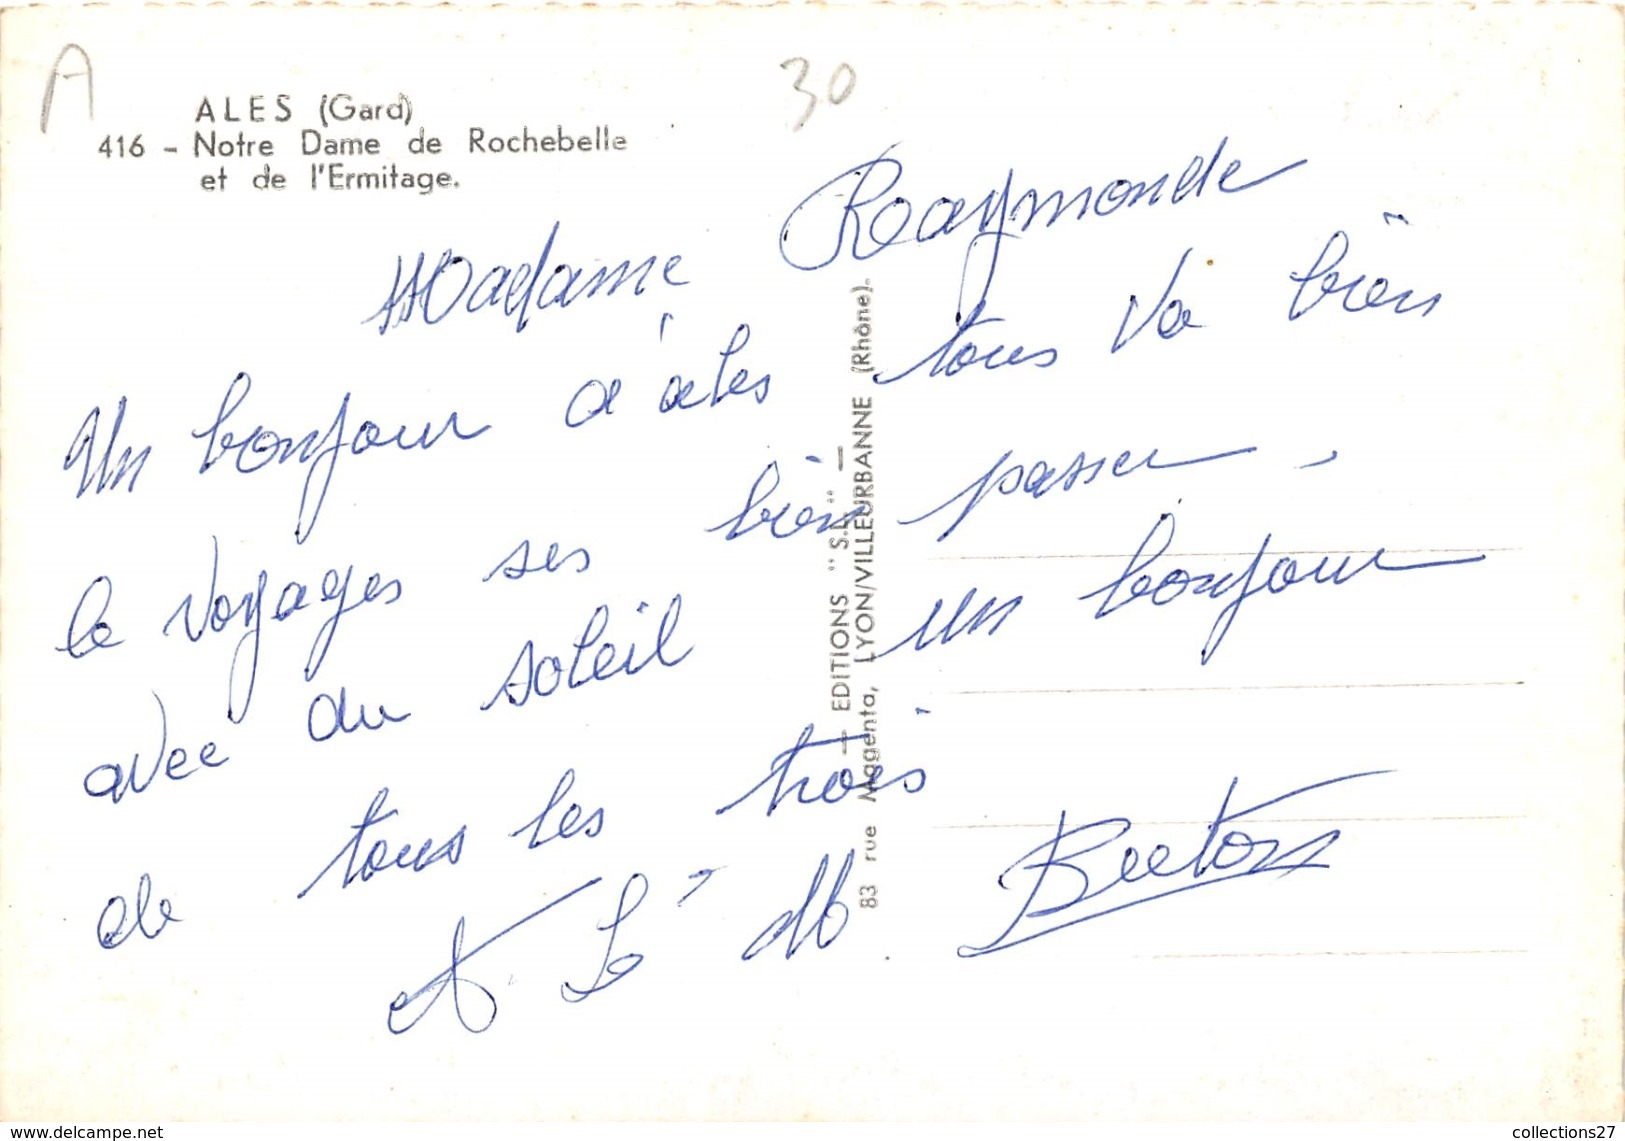 A
30
ALES (Gard)
416 - Notre Dame de Rochebelle
et de l'Ermitage.
Madame Raymonde
Un bonjour a ales tous va bien
le voyages ses bien passer -
avec du soleil un bonjour
de tous les trois
Breton
— EDITIONS "S.L" —
83 rue Magenta, LYON/VILLEURBANNE (Rhône).
www.delcampe.net
collections27